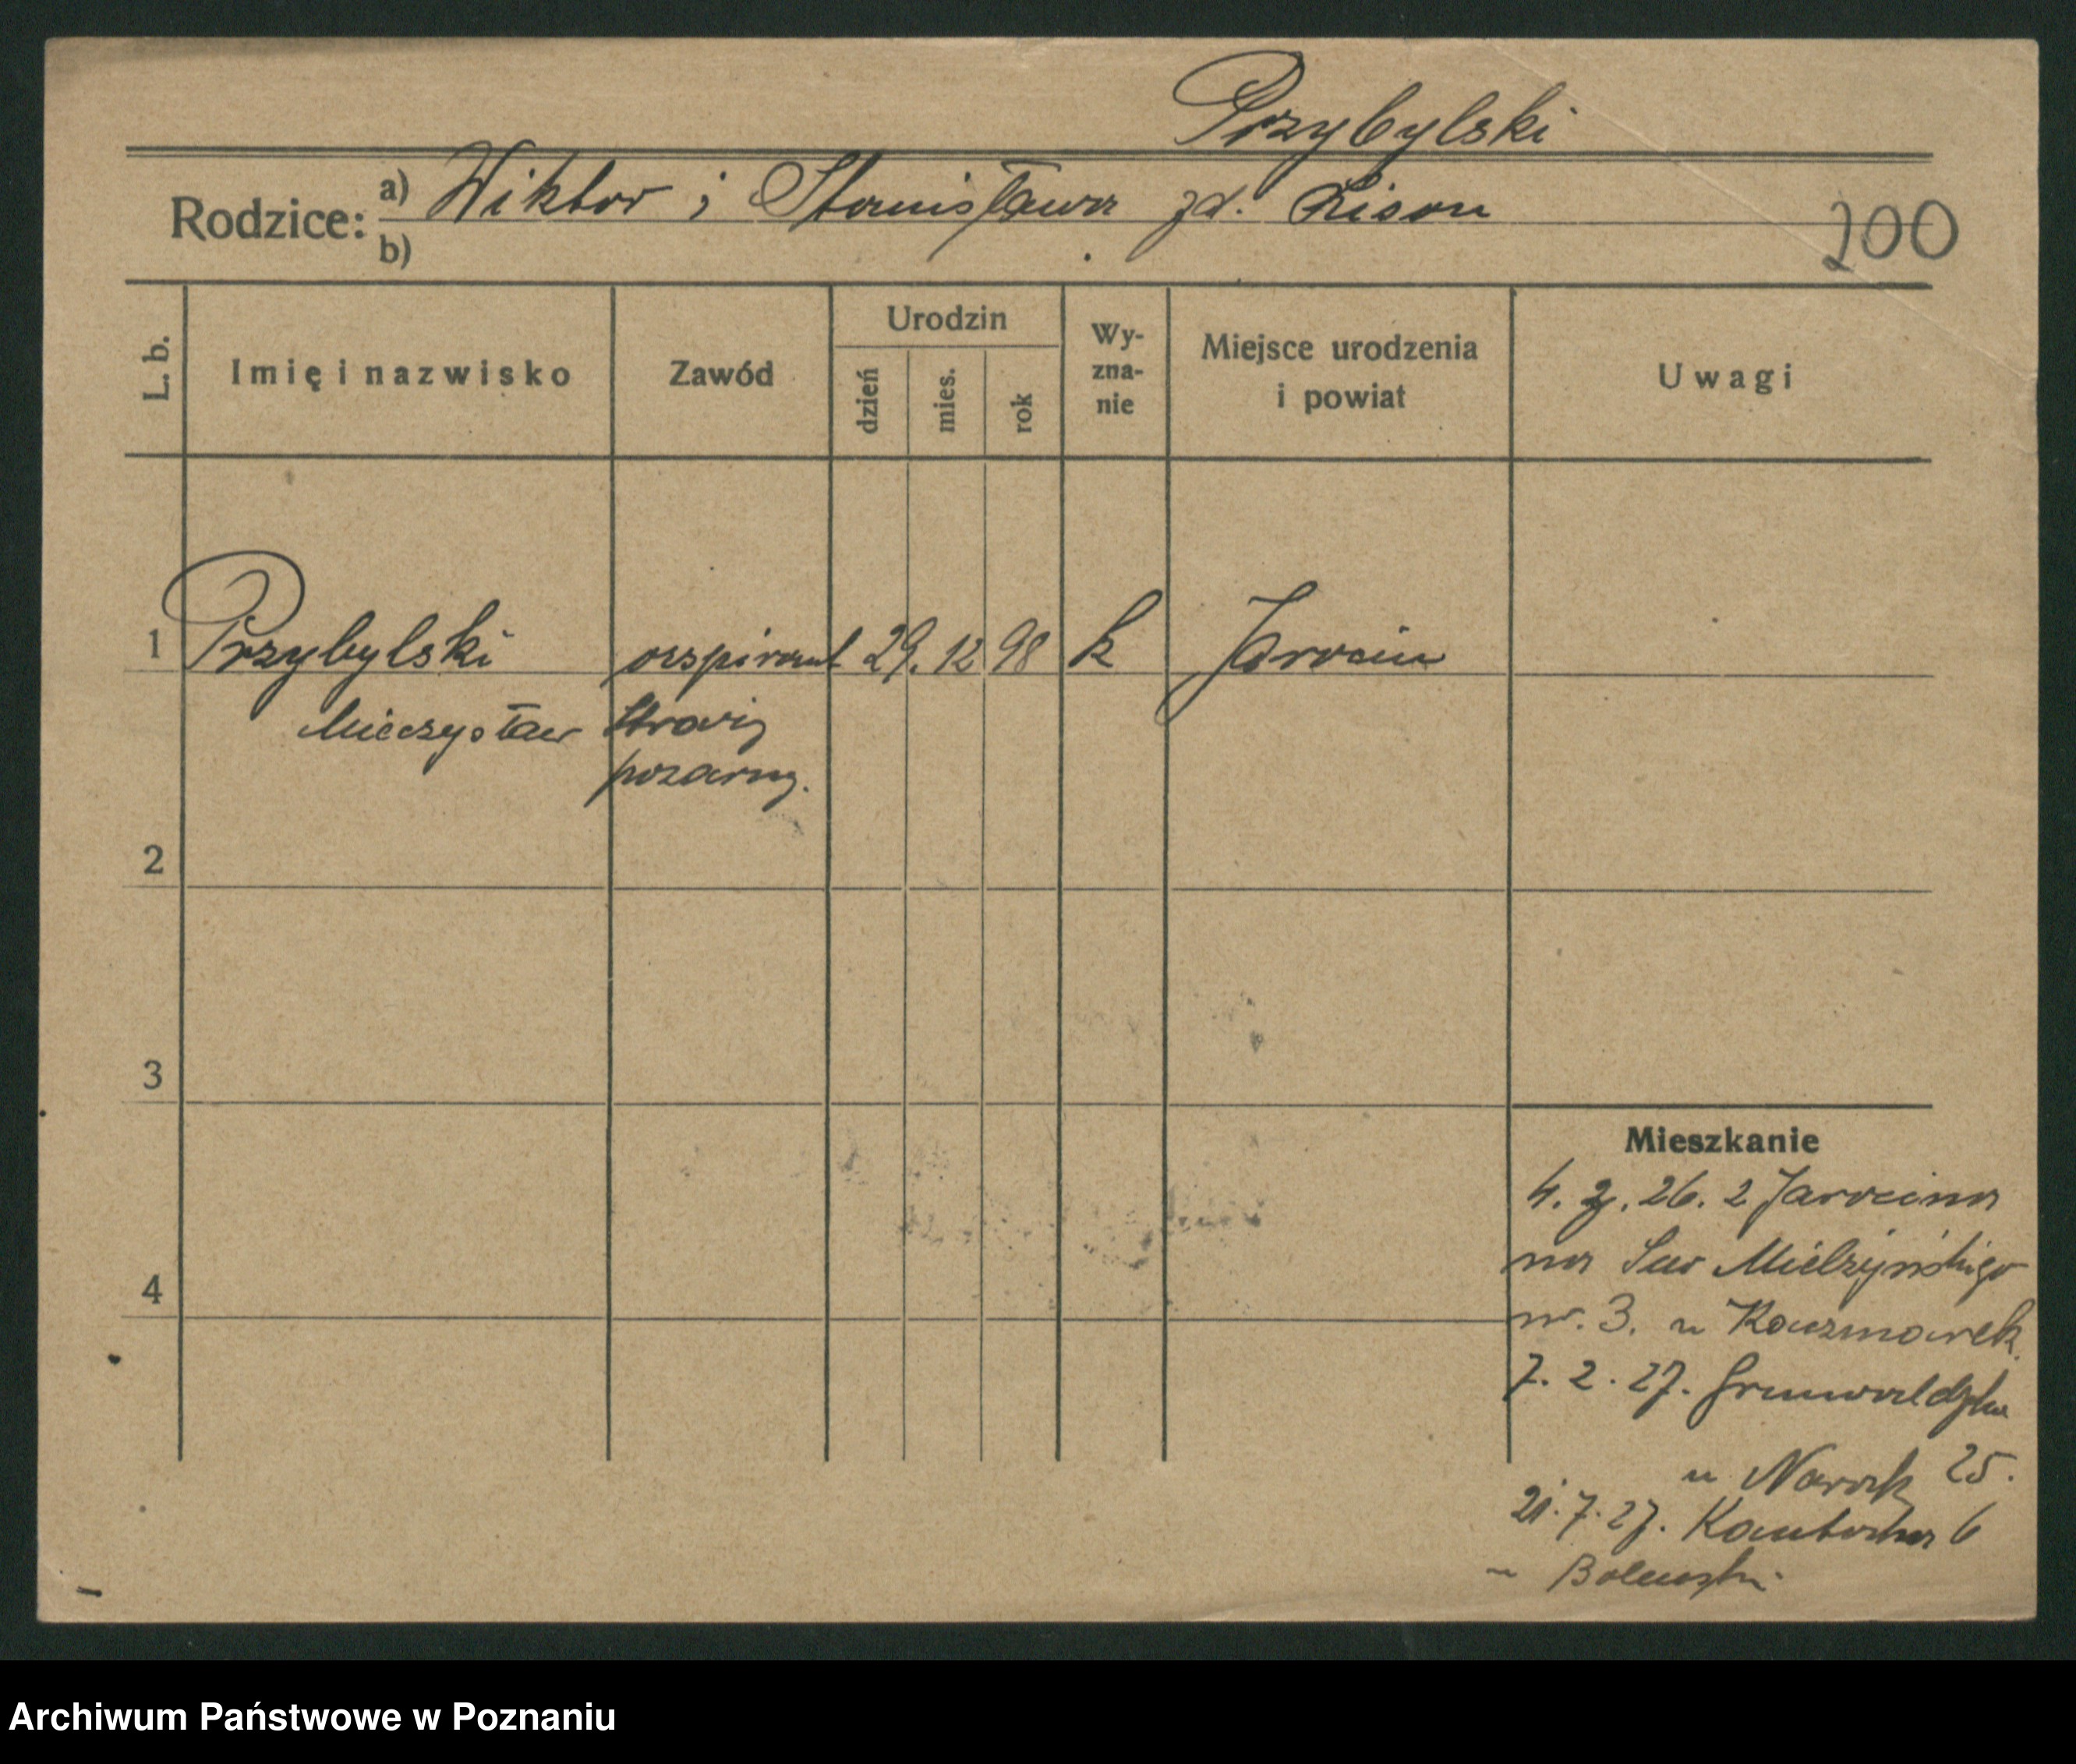 Przybylski
Rodzice: a) Wiktor i Stanisława zd. Lison
b)
200
L. b. Imię i nazwisko Zawód Urodzin dzień mies. rok Wy-zna-nie Miejsce urodzenia i powiat Uwagi
1 Przybylski aspirant 29. 12 98 k Jarocin
Mieczysław Straży
pożarnej.
2
3
Mieszkanie
4. 2. 26. z Jarocina
na Sew Mielżyńskiego
4
nr. 3. u Kaczmarek.
7. 2. 27. Grunwaldzka
u Nowak 25.
21. 7. 27. 6
u
Archiwum Państwowe w Poznaniu